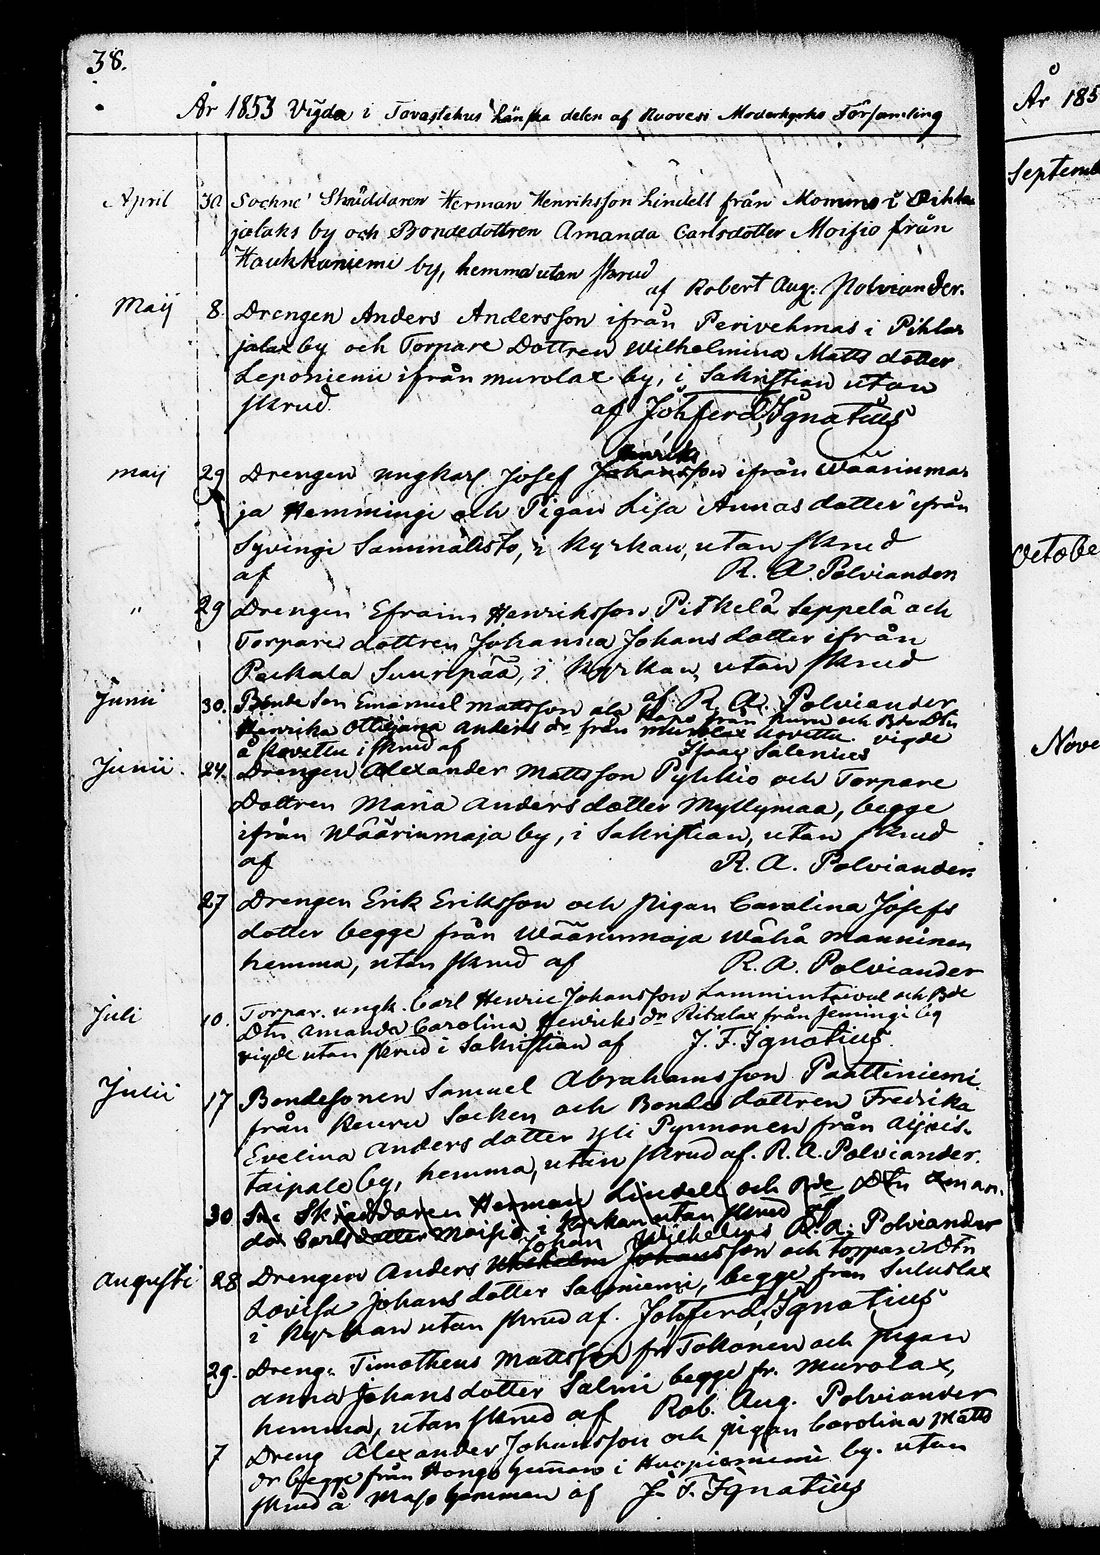 38.
År 1853 Vigda i Tavastehus Länska delen af Ruovesi Moderkyrko Församling
År 185
April 30 Sockne Skräddaren Herman Henriksson Lindell från Mommo i Pihla
jalaks by och Bondedottren Amanda Carlsdotter Moisio från
Haukkaniemi by, hemma utan skrud
af Robert Aug. Polviander.
Maij 8. Drengen Anders Andersson ifrån Perivehmas i Pihla
jalax by och Torpare Dottren Wilhelmina Matts dotter
Leponiemi ifrån murolax by, i Sakristian utan
skrud af Joh Ferd. Ignatius
maij 29 Drengen ungkarl Josef Henriksson ifrån Wäärinma
ja Hemminge och Pigan Lisa Annas dotter ifrån
Syvingi Sammalisto, i kyrkan, utan skrud
af R. A. Polviander
" 29 Drengen Efraim Henriksson Pitkelä Seppelä och
Torpare dottren Johanna Johans dotter ifrån
Paikala Suurpää, i kyrkan utan skrud
af R. A. Polviander
Junii 30. Bonde Son Emanuel mattsson ala Rapo från och Bde Dtn
Henrika Ottiliana Anders dr från murolax Kovettu vigde
å Kovettu i skrud af Isaac Salenius
Junii. 24. Drengen Alexander Mattsson Pykkiö och Torpare
Dottren Maria Anders dotter Myllymaa, begge
ifrån Wäärinmaja by, i Sakristian, utan skrud
af R. A. Polviander.
27 Drengen Erik Eriksson och pigan Carolina Josefs
dotter begge från Wäärinmaja Wähä Manninen
hemma, utan skrud af R. A. Polviander
Juli 10. Torpar. ungk. Carl Henric Johansson Lammintaival och Bde
Dtn Amanda Carolina Henriks dr Ritalax från Jemingi
vigde utan skrud i Sakristian af J. F. Ignatius.
Julii 17 Bondesonen Samuel Abrahamsson Paattiniemi
från Keuru Socken och Bonde dottren Fredrika
Evelina Anders dotter Yli Pynnönen från Aijis-
taipale by, hemma, utan skrud af. R. A. Polviander.
30 Skräddaren Herman Lindell och Bde Dtn Aman.
da Carlsdotter Moisio i Kyrkan utan skrud af R. A. Polviander
Augusti 28 Drengen Anders Johan Wilhelmsson och torpare Dtn
Lovisa Johans dotter Salmiemi, begge från Suluslax
i kyrkan utan skrud af. Joh Ferd. Ignatius
29. Dreng. Timotheus Mattsson fr. Tokonen och pigan
Anna Johans dotter Salmi begge fr. Murolax,
hemma, utan skrud af Rob. Aug. Polviander
7 Dreng Alexander Johansson och pigan Carolina Matts
dr begge från Hongo hemman i Huopiomiemi by. utan
skrud å Maso hemman af J. F. Ignatius
Septemb
Octobe
Nove